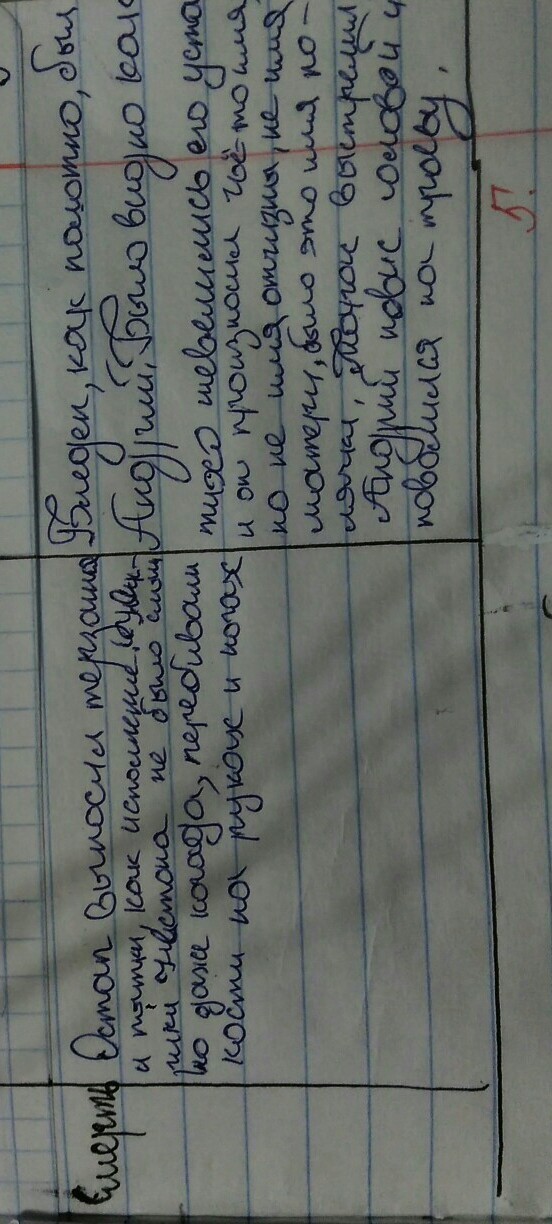 Смерть
Остап выносил терзания
и пытки, как исполин. Ни крика,
ни стона не было слыш
но даже когда, перебивали
кости на руках и ногах
Бледен, как полотно, был
Андрий, Было видно как
тихо шевелились его уста
и он произносил чьё-то имя
но не имя отчизны, не имя
матери, было это имя по-
лячки, Тарас выстрелил
Андрий повис головой и
повалился на траву.
5.